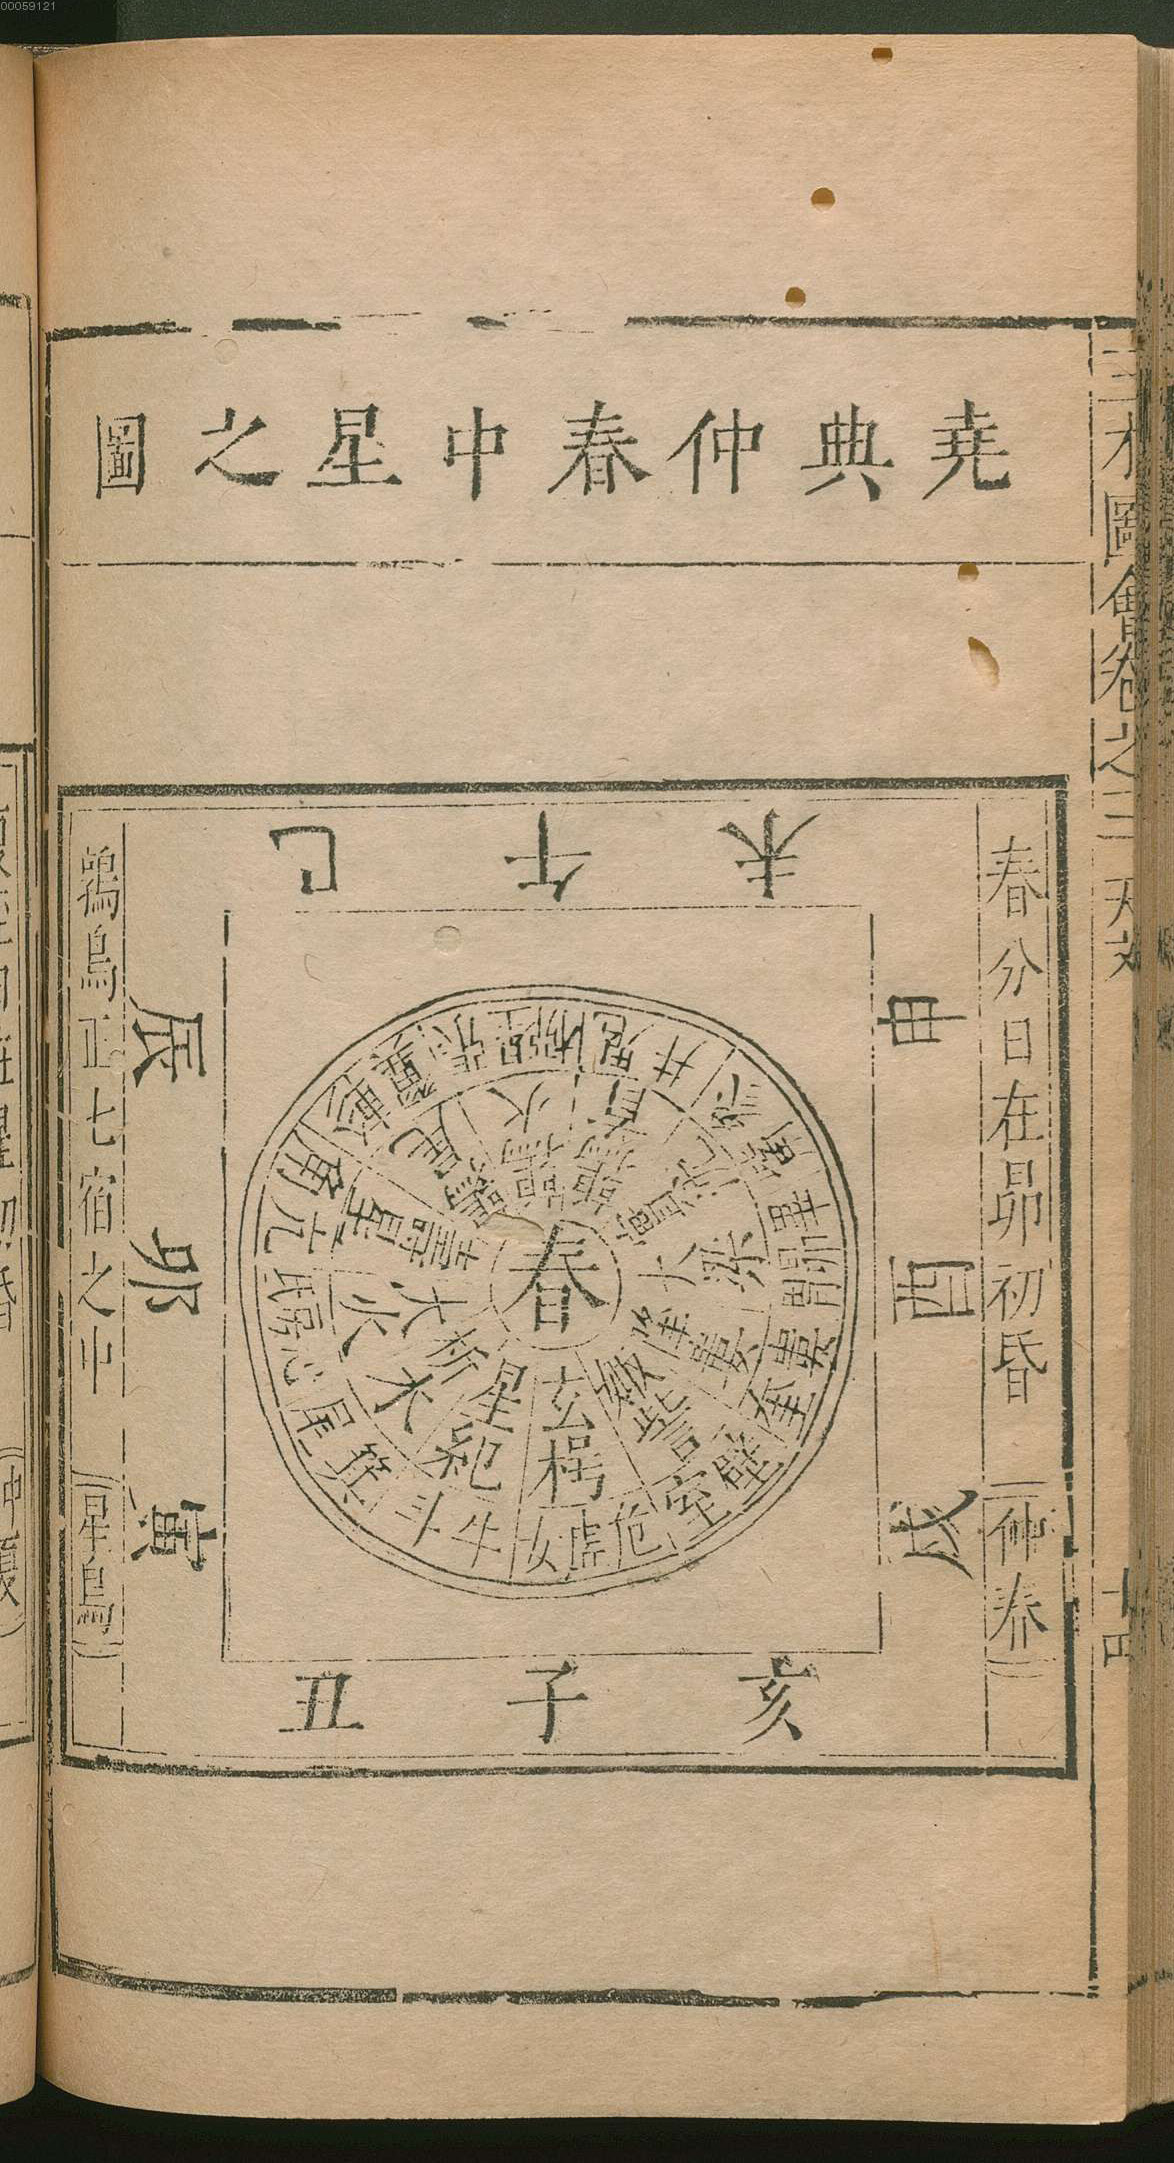 三才圖會卷之
天文
十四
堯典仲春中星之圖
春分日在昴初昏（仲春）
未午巳
申酉戌
亥子丑
辰卯寅
春
玄枵
訾
降婁
大梁
實沈
鶉首
鶉火
鶉尾
壽星
大火
析木
星紀
女虛危
室壁
奎婁
胃昴畢
觜參
井鬼
柳星張
翼軫
角亢
氐房心
尾箕
斗牛
鶉鳥正七宿之中（星鳥）
00059121